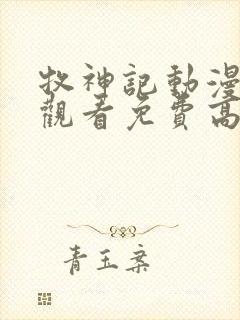 牧神記動漫
觀看免費高
青玉案